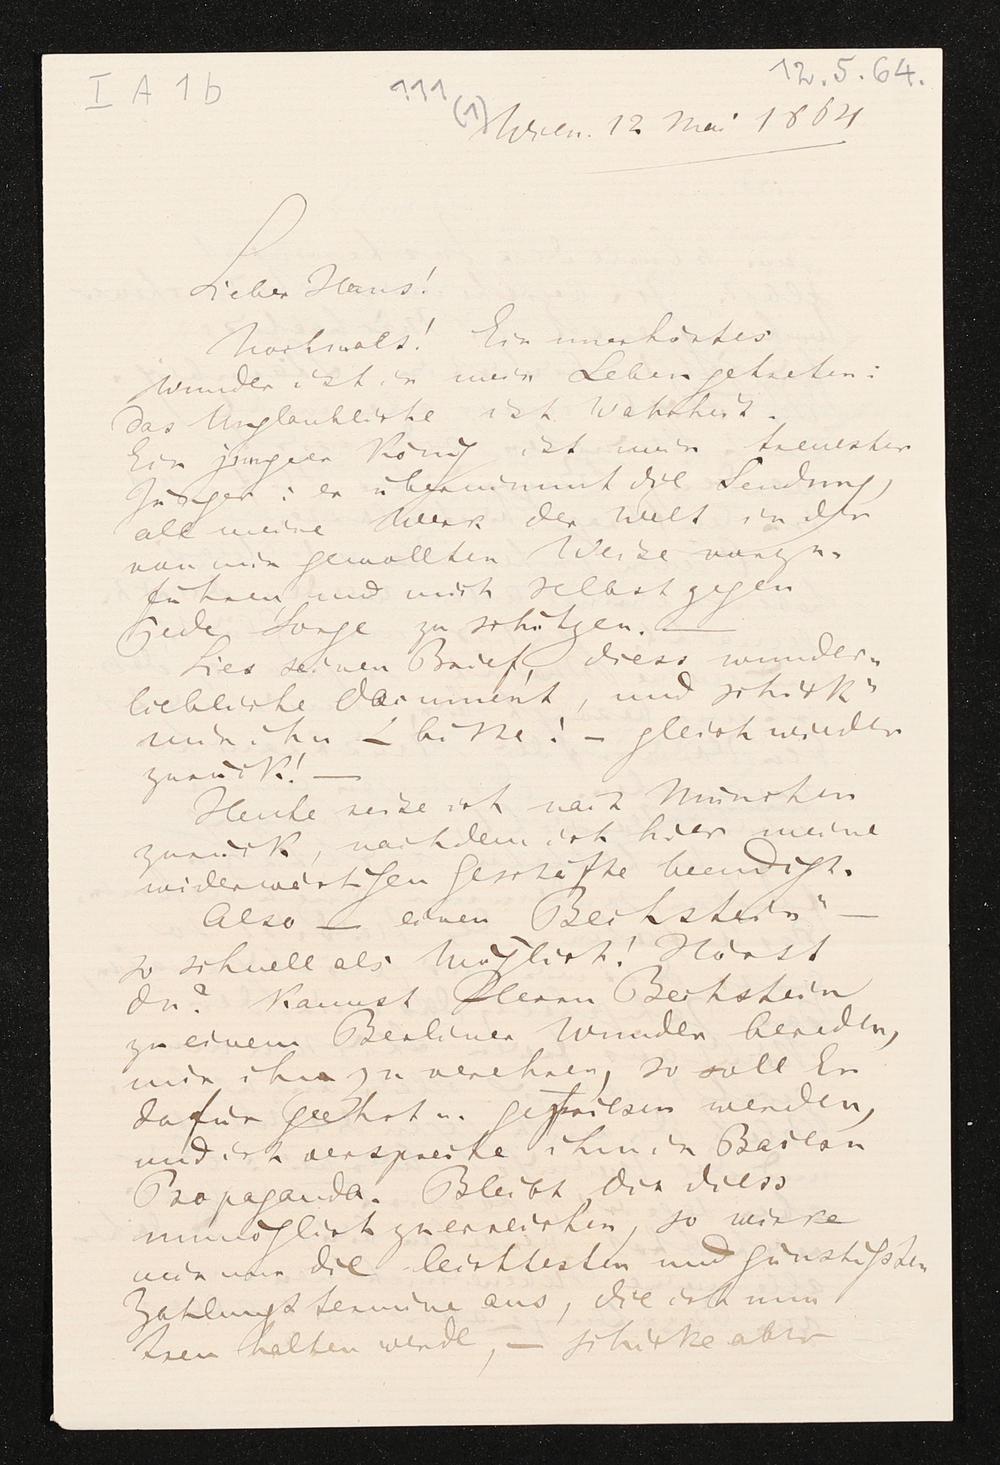 I A 1b
111
(1)
12.5.64.
Wien. 12 Mai 1864
Lieber Hans!
Nochmals! Ein unerhörtes
Wunder ist in mein Leben getreten:
das Unglaubliche ist Wahrheit.
Ein junger König ist mein treuester
Jünger: er übernimmt die Sendung,
all meine Werk der Welt in der
von mir gewollten Weise vorzu-
führen, und mich selbst gegen
jede Sorge zu schützen. —
Lies seinen Brief, diess wunder-
liebliche Document, und schick'
mir ihn – bitte! – gleich wieder
zurück! —
Heute reise ich nach München
zurück, nachdem ich hier meine
widerwärtigen Geschäfte beendigt.
Also — einen Bechstein" —
so schnell als möglich! Hörst
du? Kannst Herrn Bechstein
zu einem Berliner Wunder bereden,
mir ihn zu verehren, so soll Er
dafür geehrt u. gepriesen werden,
und ich verspreche ihm in Baiern
Propaganda. Bleibt dir diess
unmöglich zu erreichen, so wirke
mir nur die leichtesten und günstigsten
Zahlungstermine aus, die ich nun
treu halten werde, — schicke aber